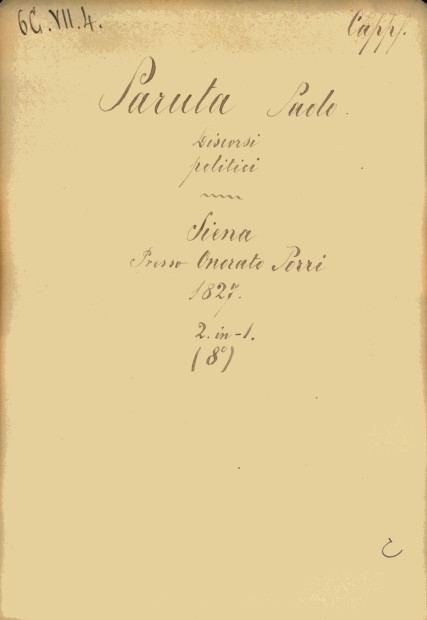 6C.VII.4.
Capp.
Paruta Paolo.
Discorsi
politici
Siena
Presso Onorato Porri
1827.
2. in-1.
(8°)